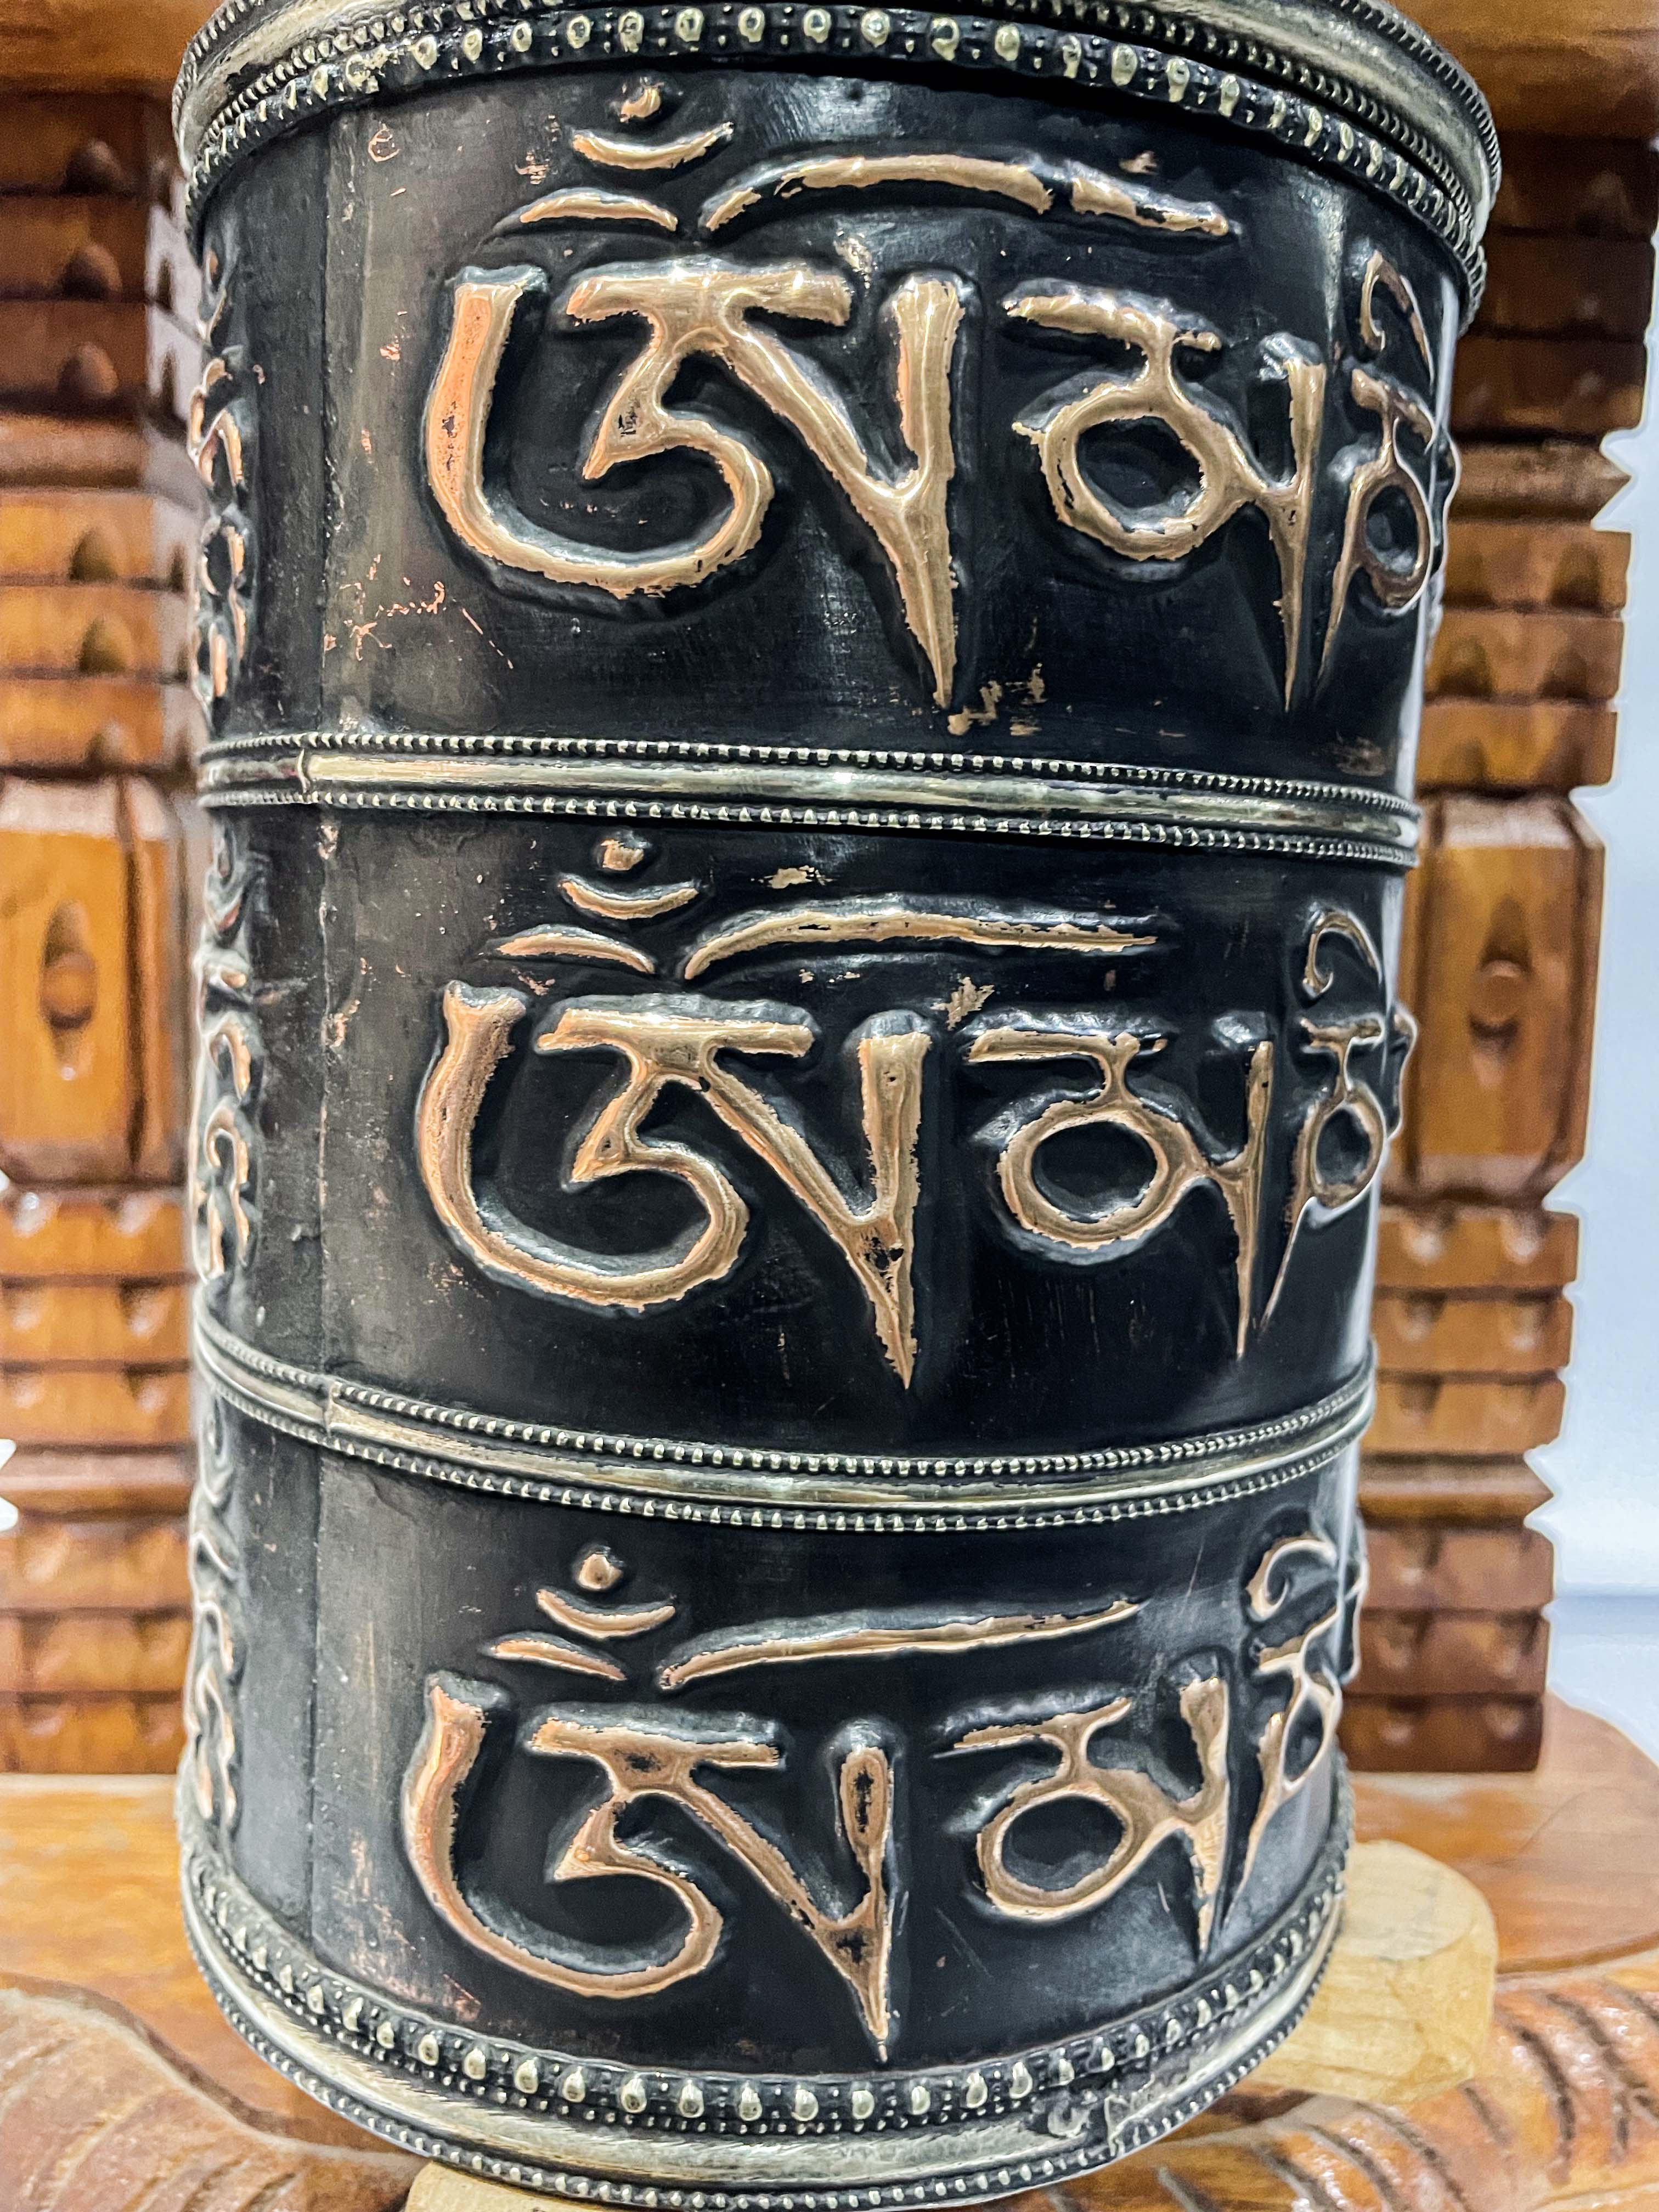 ཨོཾ མ ཎི
ཨོཾ མ ཎི
ཨོཾ མ ཎི